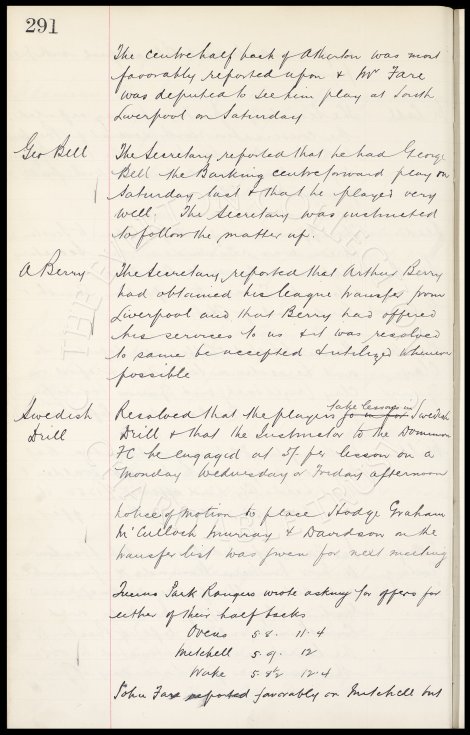 291
The centre half back of Atherton was most
favorably reported upon & Mr Fare
was deputed to see him play at South
Liverpool on Saturday
Geo Bell
The Secretary reported that he had George
Bell the Barking centre forward play on
Saturday last & that he played very
well. The Secretary was instructed
to follow the matter up.
A Berry
The Secretary reported that Arthur Berry
had obtained his league transfer from
Liverpool and that Berry had offered
his services to us & it was resolved
to same be accepted & utilized whenever
possible
Swedish
Drill
Resolved that the players go in for take lessons in Swedish
Drill & that the Instructor to the Dominion
FC be engaged at 5/- per lesson on a
Monday Wednesday or Friday afternoon
Notice of Motion to place Hodge Graham
McCulloch Murray & Davidson on the
transfer list was given for next meeting
Queens Park Rangers wrote asking for offers for
either of their half backs
Ovens 5.8. 11.4
Mitchell 5.9. 12
Wake 5.8½ 12.4
John Fare reported favorably on Mitchell but